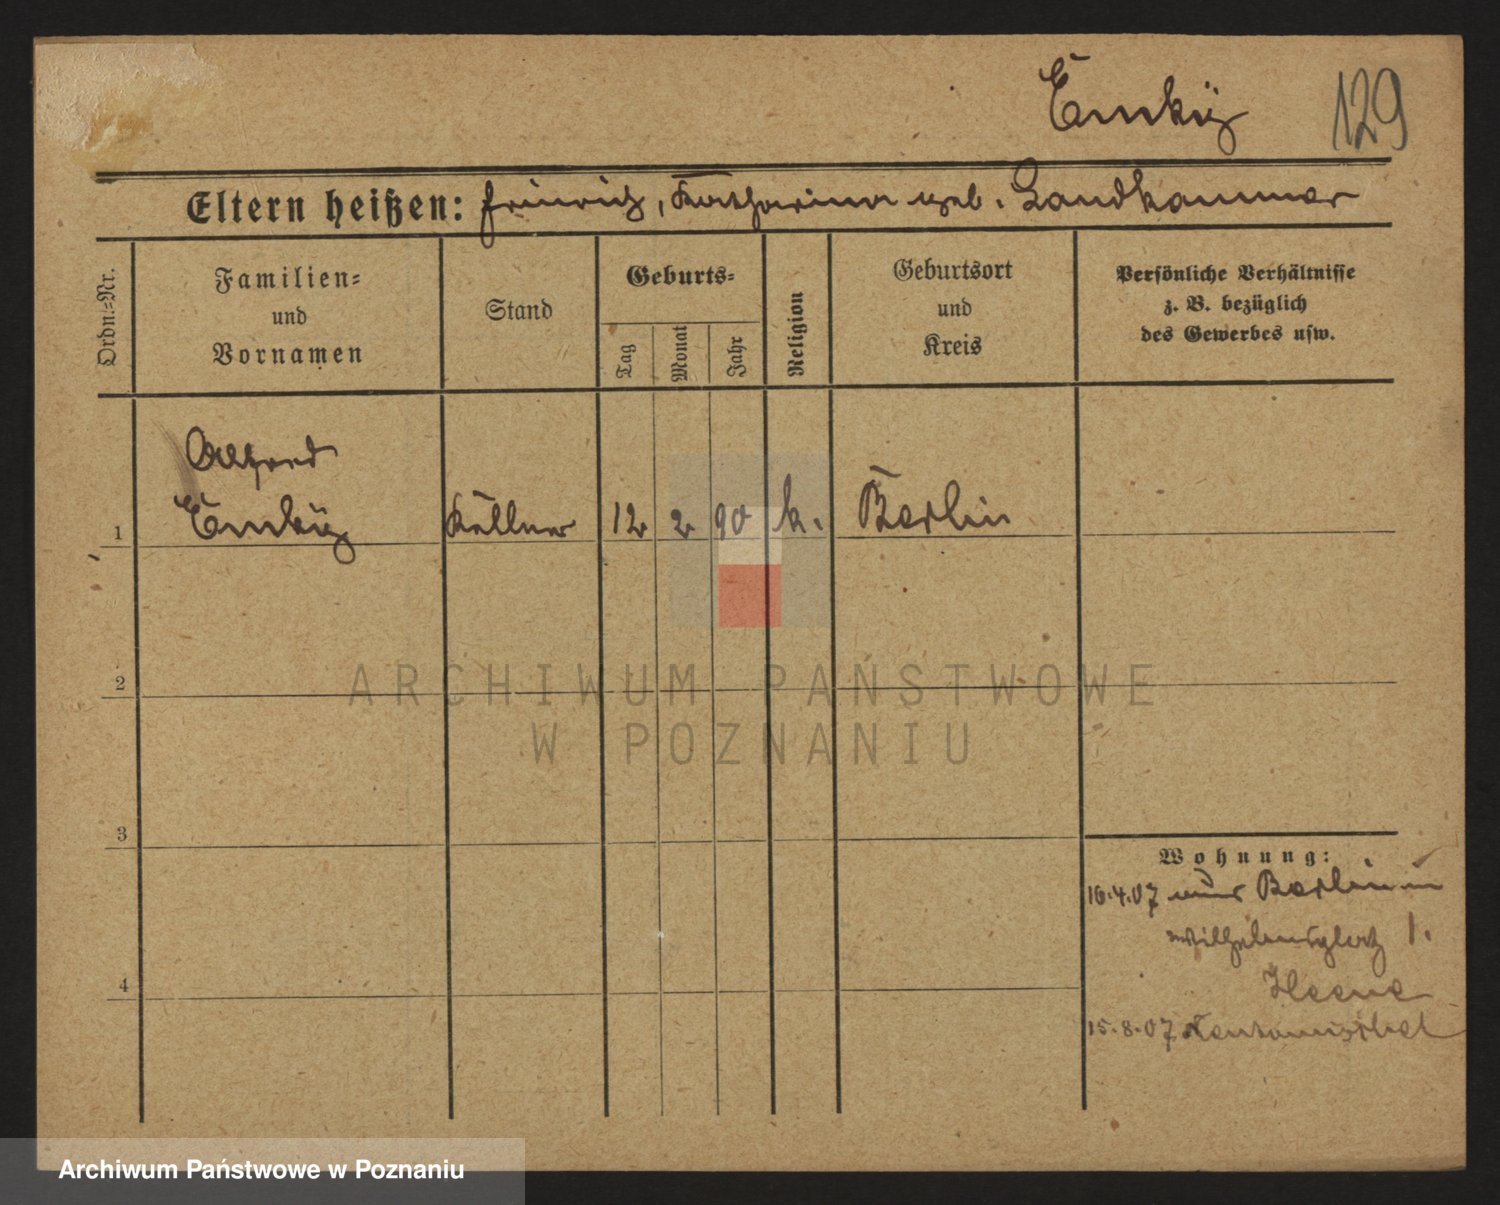 129
Eltern heißen: Heinrich, Katharina geb. Landkammer
Ordn.=Nr.
Familien=
und
Vornamen
Stand
Geburts=
Tag
Monat
Jahr
Religion
Geburtsort
und
Kreis
Persönliche Verhältnisse
z. B. bezüglich
des Gewerbes usw.
Alfred
1 Kellner 12 2 90 k. Berlin
2
3
4
Wohnung:
16.4.07 Berlin
Wilhelmsplatz 1.
15.8.07
ARCHIWUM PAŃSTWOWE
W POZNANIU
Archiwum Państwowe w Poznaniu